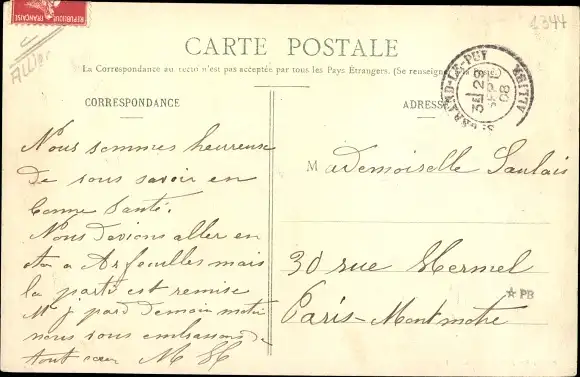 REPUBLIQUE FRANÇAISE
Allier
1344
CARTE POSTALE
La Correspondance au recto n'est pas acceptée par tous les Pays Étrangers. (Se renseigner à la Poste)
CORRESPONDANCE
ADRESSE
GÉRAND-LE-PUY
ALLIER
3E 23
SEPT
08
Nous sommes heureuse
de vous savoir en
bonne santé.
Nous devions aller en
a Arfeuilles mais
la partit est remise
Mr j pard demain matin
nous vous embrassons de
tout cœur M H
Mademoiselle Saulais
30 rue Hermel
Paris-Montmotre
PB